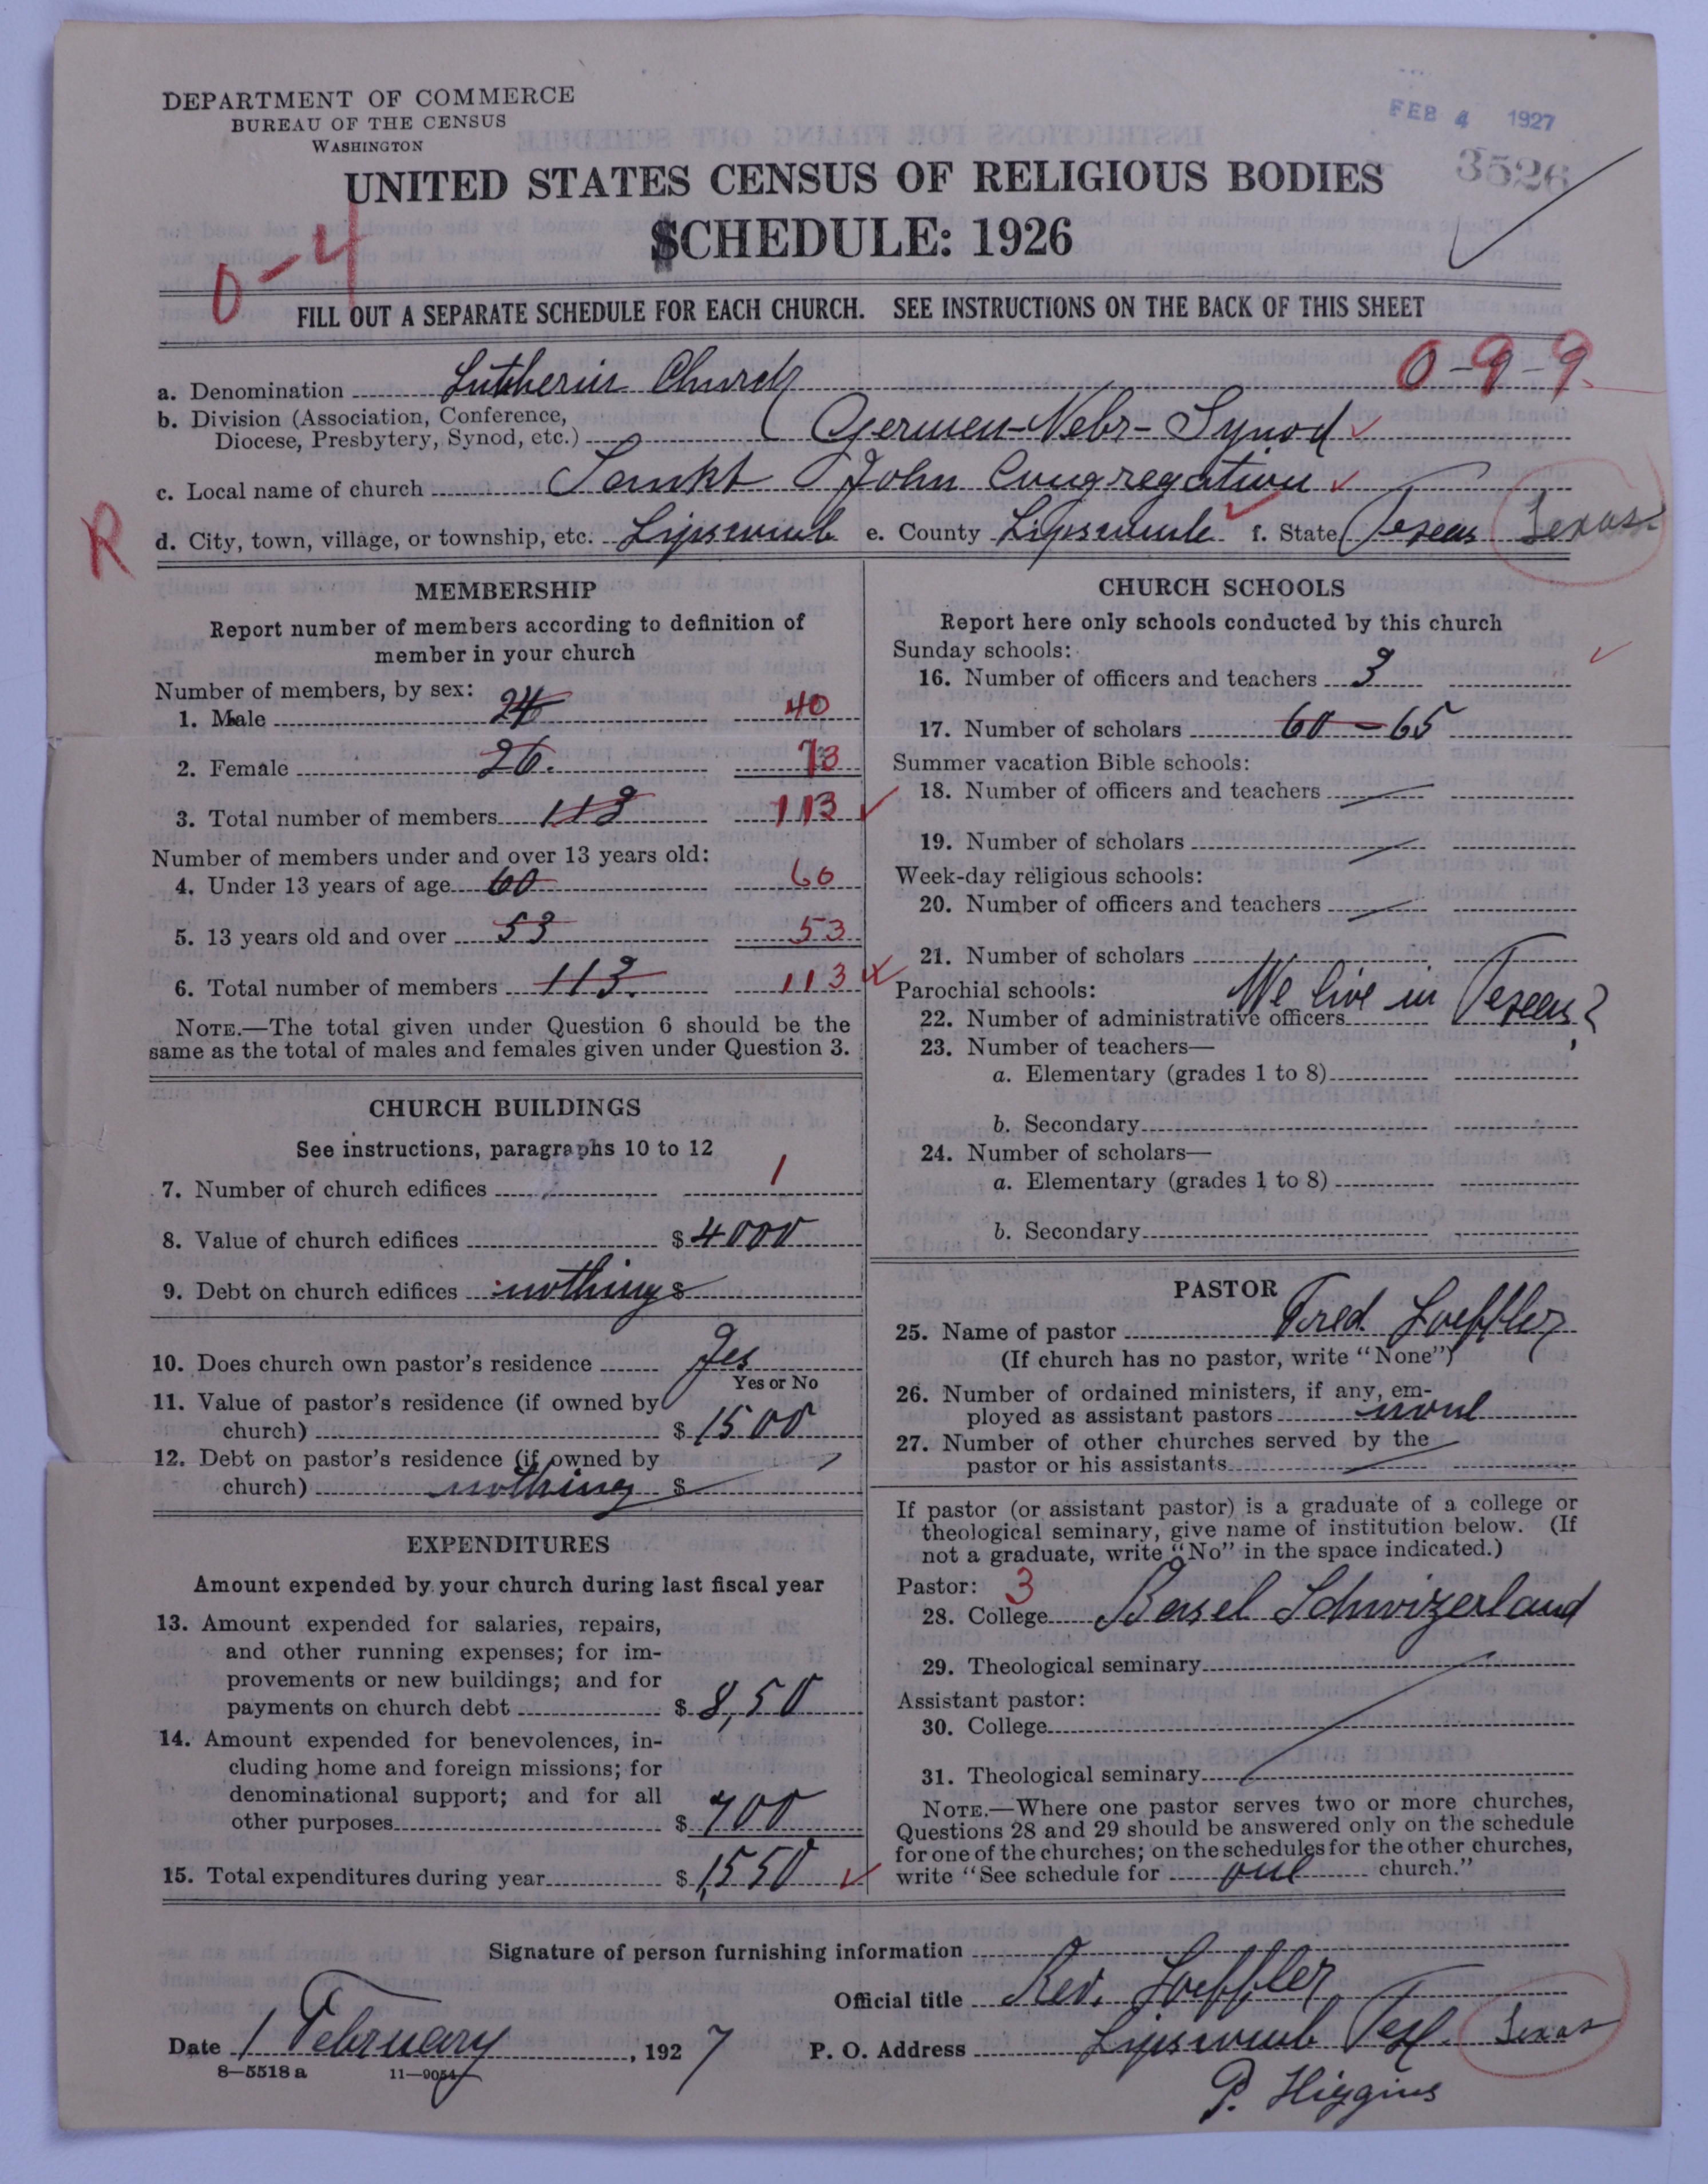 DEPARTMENT OF COMMERCE
BUREAU OF THE CENSUS
WASHINGTON
FEB 4 1927
3526
UNITED STATES CENSUS OF RELIGIOUS BODIES
SCHEDULE: 1926
0-4
FILL OUT A SEPARATE SCHEDULE FOR EACH CHURCH. SEE INSTRUCTIONS ON THE BACK OF THIS SHEET
0-9-9
a. Denomination Lutherin Church
b. Division (Association, Conference,
Diocese, Presbytery, Synod, etc.) Germen-Nebr-Synod
c. Local name of church Sankt John Congregation
R
d. City, town, village, or township, etc. Lipscomb e. County Lipscomb f. State Texas Texas
MEMBERSHIP
Report number of members according to definition of
member in your church
Number of members, by sex:
1. Male 24 40
2. Female 26. 73
3. Total number of members 113 113
Number of members under and over 13 years old:
4. Under 13 years of age 60 60
5. 13 years old and over 53 53
6. Total number of members 113. 113
NOTE.—The total given under Question 6 should be the
same as the total of males and females given under Question 3.
CHURCH BUILDINGS
See instructions, paragraphs 10 to 12
7. Number of church edifices 1
8. Value of church edifices $ 4000
9. Debt on church edifices nothing $
10. Does church own pastor's residence Yes
Yes or No
11. Value of pastor's residence (if owned by
church) $ 1500
12. Debt on pastor's residence (if owned by
church) nothing $
EXPENDITURES
Amount expended by your church during last fiscal year
13. Amount expended for salaries, repairs,
and other running expenses; for im-
provements or new buildings; and for
payments on church debt $ 8,50
14. Amount expended for benevolences, in-
cluding home and foreign missions; for
denominational support; and for all
other purposes $ 700
15. Total expenditures during year $ 1,550
CHURCH SCHOOLS
Report here only schools conducted by this church
Sunday schools:
16. Number of officers and teachers 3
17. Number of scholars 60 - 65
Summer vacation Bible schools:
18. Number of officers and teachers
19. Number of scholars
Week-day religious schools:
20. Number of officers and teachers
21. Number of scholars
Parochial schools: We live in Texas?
22. Number of administrative officers
23. Number of teachers—
a. Elementary (grades 1 to 8)
b. Secondary
24. Number of scholars—
a. Elementary (grades 1 to 8)
b. Secondary
PASTOR
25. Name of pastor Fred. Loeffler
(If church has no pastor, write "None")
26. Number of ordained ministers, if any, em-
ployed as assistant pastors none
27. Number of other churches served by the
pastor or his assistants
If pastor (or assistant pastor) is a graduate of a college or
theological seminary, give name of institution below. (If
not a graduate, write "No" in the space indicated.)
Pastor: 3
28. College Basel Schwizerland
29. Theological seminary
Assistant pastor:
30. College
31. Theological seminary
NOTE.—Where one pastor serves two or more churches,
Questions 28 and 29 should be answered only on the schedule
for one of the churches; on the schedules for the other churches,
write "See schedule for one church."
Signature of person furnishing information
Official title Rev. Loeffler
Date 1 February, 1927 P. O. Address Lipscomb Tex. Texas
8—5518 a 11—9054
P. Higgins